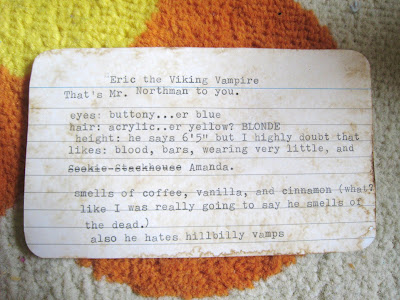 Eric the Viking Vampire
That's Mr. Northman to you.
eyes: buttony...er blue
hair: acrylic..er yellow? BLONDE
height: he says 6'5" but I highly doubt that
likes: blood, bars, wearing very little, and
Sookie Stackhouse Amanda.
smells of coffee, vanilla, and cinnamon (what?
like I was really going to say he smells of
the dead.)
also he hates hillbilly vamps